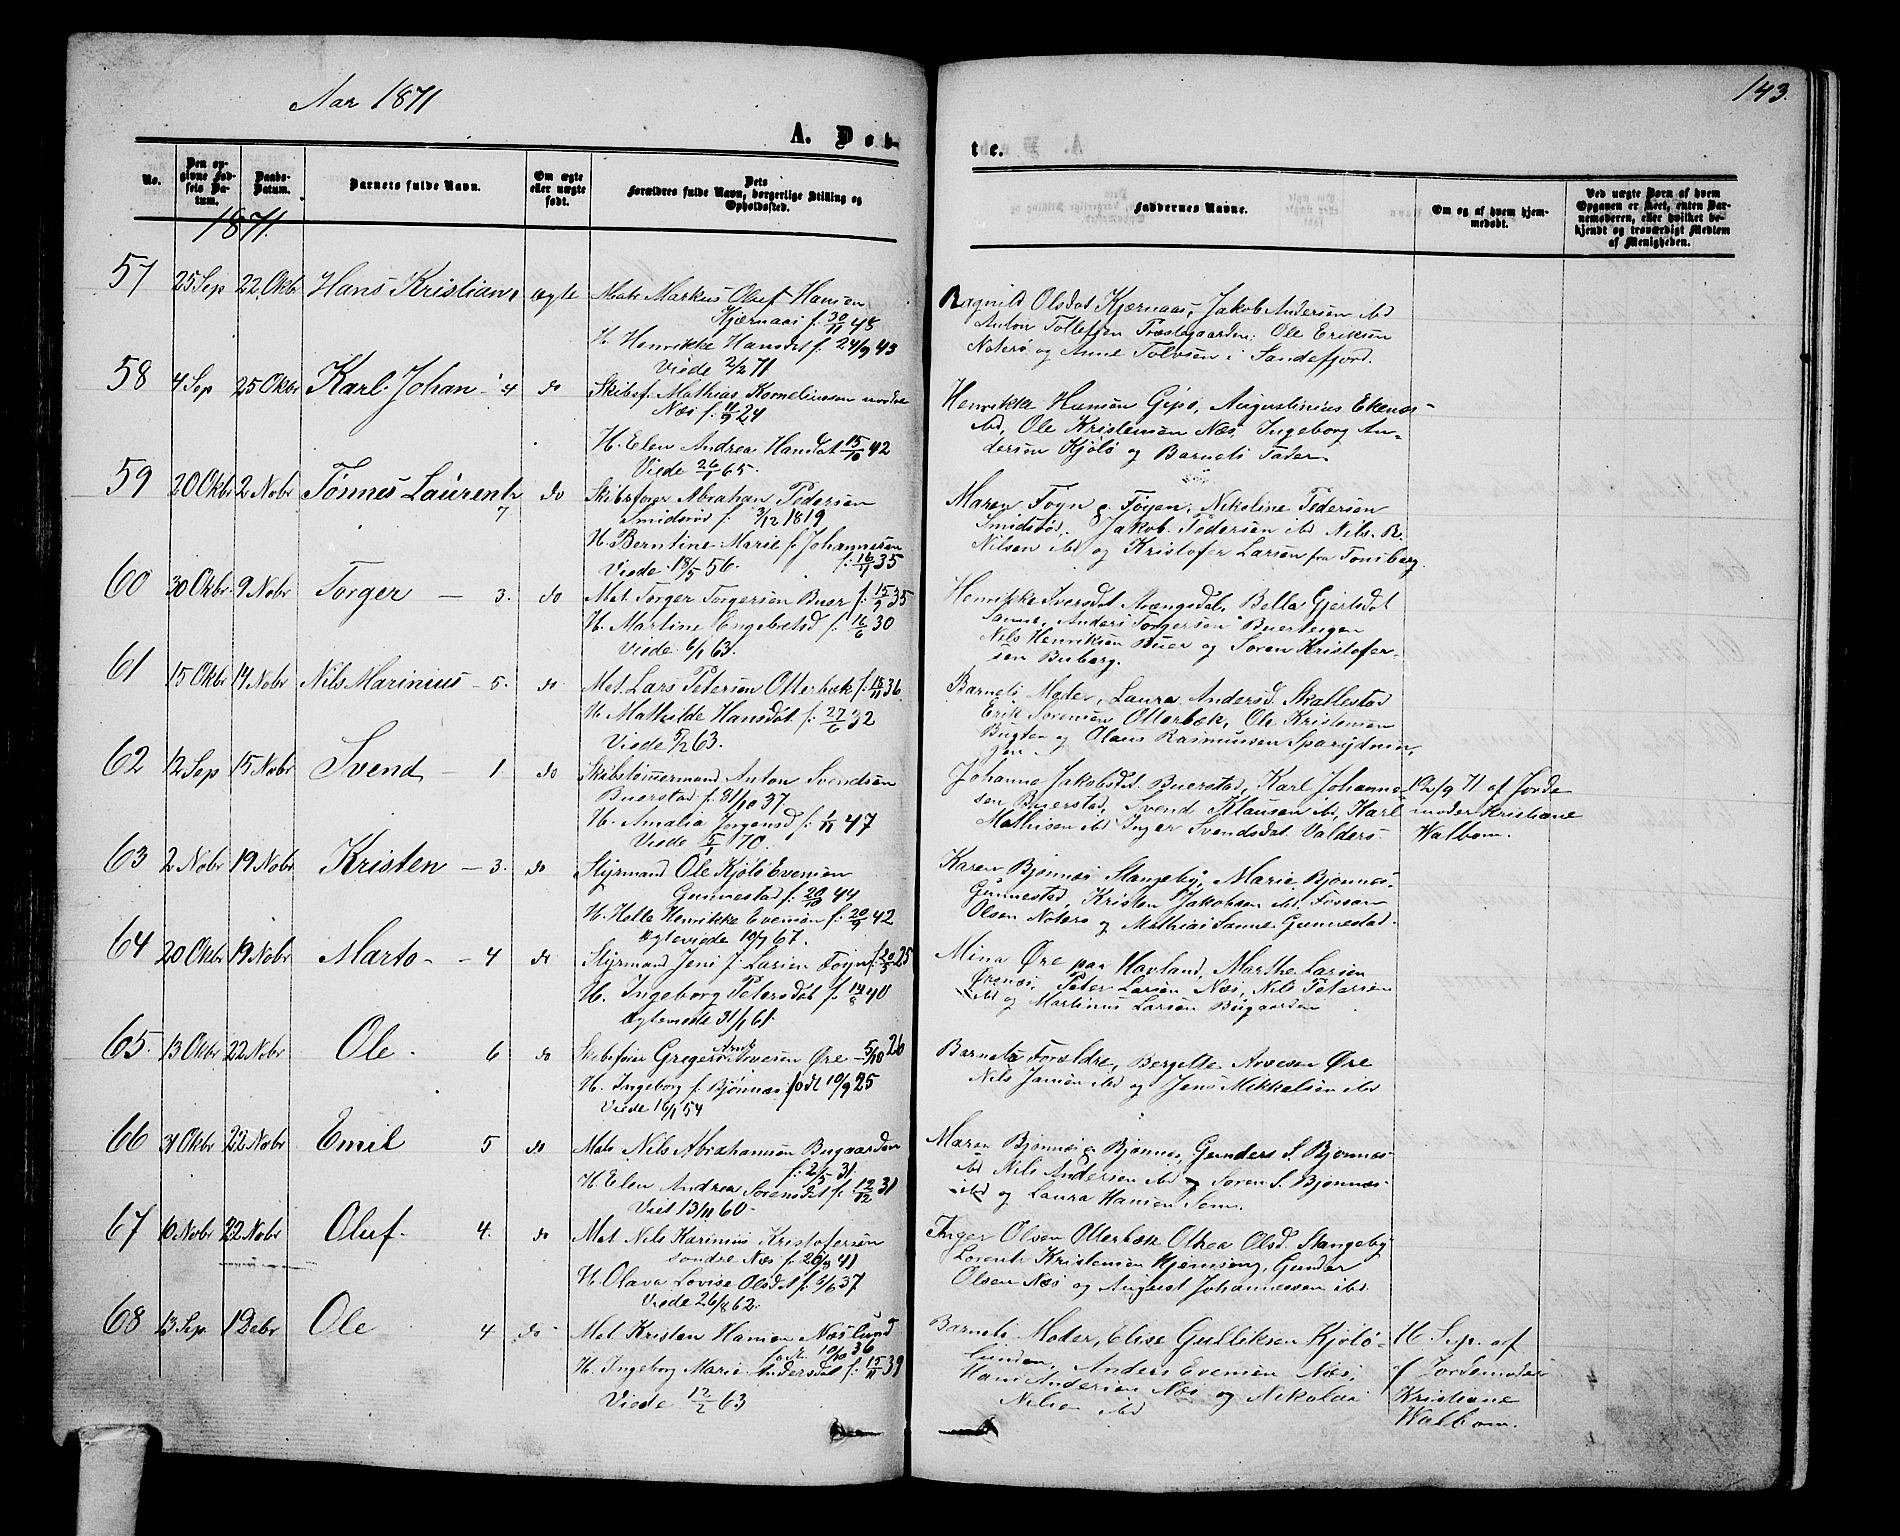 Aar 1871
143.
A. Døb-
te.
No.
Den opgivne Fødsels Datum.
Daabs-Datum.
Barnets fulde Navn.
Om ægte eller uægte født.
Dets Forældres fulde Navn, borgerlige Stilling og Opholdssted.
Faddernes Navne.
Om og af hvem hjemmedøbt.
Ved uægte Børn af hvem Opgaven er skeet, enten Barnemoderen, eller hvilket bekjendt og troværdigt Medlem af Menigheden.
1871.
57 25 Sep 22 Okbr Hans Kristian 1 ægte Mats Markus Oluf Hansen
Kjærnaas f. 30/11 45
H. Henrikke Hansdat f. 24/9 43
Viede 2/2 71
Ragnild Olsdat Kjærnaas, Jakob Andersen ibd
Anton Tollefsen Præstegaarden, Ole Eriksen
Noterø og Anne Tolvsen i Sandefjord.
58 4 Sep 25 Okbr Karl Johan - 4 do Skibsf. Mathias Korneliussen nordre
Næs f. 11/9 24
H. Elen Andrea Hansdat 15/10 42
Viede 26/1 65.
Henrikke Hansen Gipø, Augustinius Ekenes
ibd, Ole Kristensen Næs, Ingeborg An-
dersen KjøLø og Barnets Fader.
59 20 Okbr 2 Nobr Tønnes Laurentz 7 do Skibsfører Abraham Pedersen
Smidsrød f. 3/12 1819
H. Berntine Marie f. Johannesen
Viede 18/5 56. f. 16/1 35
Maren Foyn f. Føyen, Nikoline Pedersen
Smidsrød, Jakob Pedersen ibd Nils B.
Nilsen ibd og Kristofer Larsen fra Tonsberg.
60 30 Okbr 9 Nobr Torger - 3. do Mat. Torger Torgersen Buer f. 15/9 35
H. Martine Engebretsd f. 16/6 30
Viede 6/1 63.
Henrikke Iversdat Vængsdal, Bella Gjertsdat
Sanne, Anders Torgersen Buerteigen
Nils Henriksen Buer og Soren Kristofer-
sen Buberg.
61 15 Okbr 14 Nobr Nils Marinius - 5. do Mat. Lars Petersen Otterbæk f. 15/11 36
H. Mathilde Hansdat f. 27/6 32
Viede 5/2 63.
Barnets Moder, Laura Andersd. Skallestad
Erik Sorensen Otterbæk, Ole Kristensen
Bugten og Olaus Rasmussen
62 12 Sep 15 Nobr Svend - 1 do Skibstømmermand Anton Svendsen
Buerstad f. 31/10 37
H. Amalia Jorgensd f. 1/11 47
Viede 70.
Johanne Jakobsdat. Buerstad, Karl Johanne-
sen Buerstad, Svend Klausen ibd, Karl
Mathisen ibd Inger Svendsdat Valders
12/9 71 af Jorde
moder Kristiane
Walbom.
63 2 Nobr 19 Nobr Kristen - 3. do Styrmand Ole Kjølø Evensen
Gunnestad f. 20/10 44
H. Helle Henrikke Evensen f. 20/9 42
Ægteviede 10/9 67.
Karen Bjønnes Stangeby, Marie Bjonnes
Gunnestad, Kristen Jakobsen ibd.
Olsen Noterø og Mathias Sanne Gunnestad.
64 20 Okbr 19 Nobr Marto - 4 do Styrmand Jens J. Larsen Foyn f. 20/5 25
H. Ingeborg Petersdat f. 14/8 40
Ægteviede 31/1 61.
Mina Øre paa Havland, Marthe Larsen
Ørsnes, Peter Larsen Næs, Nils Petersen
ibd og Martinus Larsen Bugaarden
65. 13 Okbr 22 Nobr Ole. 6 do Skibsfører Gregers Arnt Iversen Øre 5/10 26
H. Ingeborg f. Bjønnas født 10/9 25
Viede 16/1 54
Barnets Forældre, Bergette Arvesen Øre
Nils Jansen ibd og Jens Mikkelsen ibd
66 31 Okbr 22 Nobr Emil 5 do Mats Nils Abrahamsen Bugaarden
f. 2/5 31.
H. Elen Andrea Sorensdat f. 12/12 31
Viet 13/11 60.
Maren Bjonnes Bjonnes, Gunders S. Bjonnes
ibd Nils Andersen ibd Soren S. Bjonnes
ibd og Laura Hansen Sem.
67 10 Nobr 22 Nobr Oluf. 4. do Mat Nils Karinius Kristofersen
sondre Næs f. 20/9 41
H. Olava Lovise Olsdat f. 5/6 37
Viede 26/8 62.
Inger Olsen Otterbæk Othea Olsd. Stangeby
Lorents Kristensen Hjemseng, Gunder
Olsen Næs og August Johannessen ibd.
68 13 Sep. 1 Debr Ole 4 do Mat Kristen Hansen Næslund
født 10/10 36
H. Ingeborg Marie Andersdat f. 15/11 39
Viede 12/2 63
Barnets Moder, Elise Gulliksen Kjølø-
lunden, Anders Evensen Næs,
Hans Andersen Næs og Nikolai
Nilsen ibd
16 Sep. af
Jordemoder
Kristiane
Walbom.